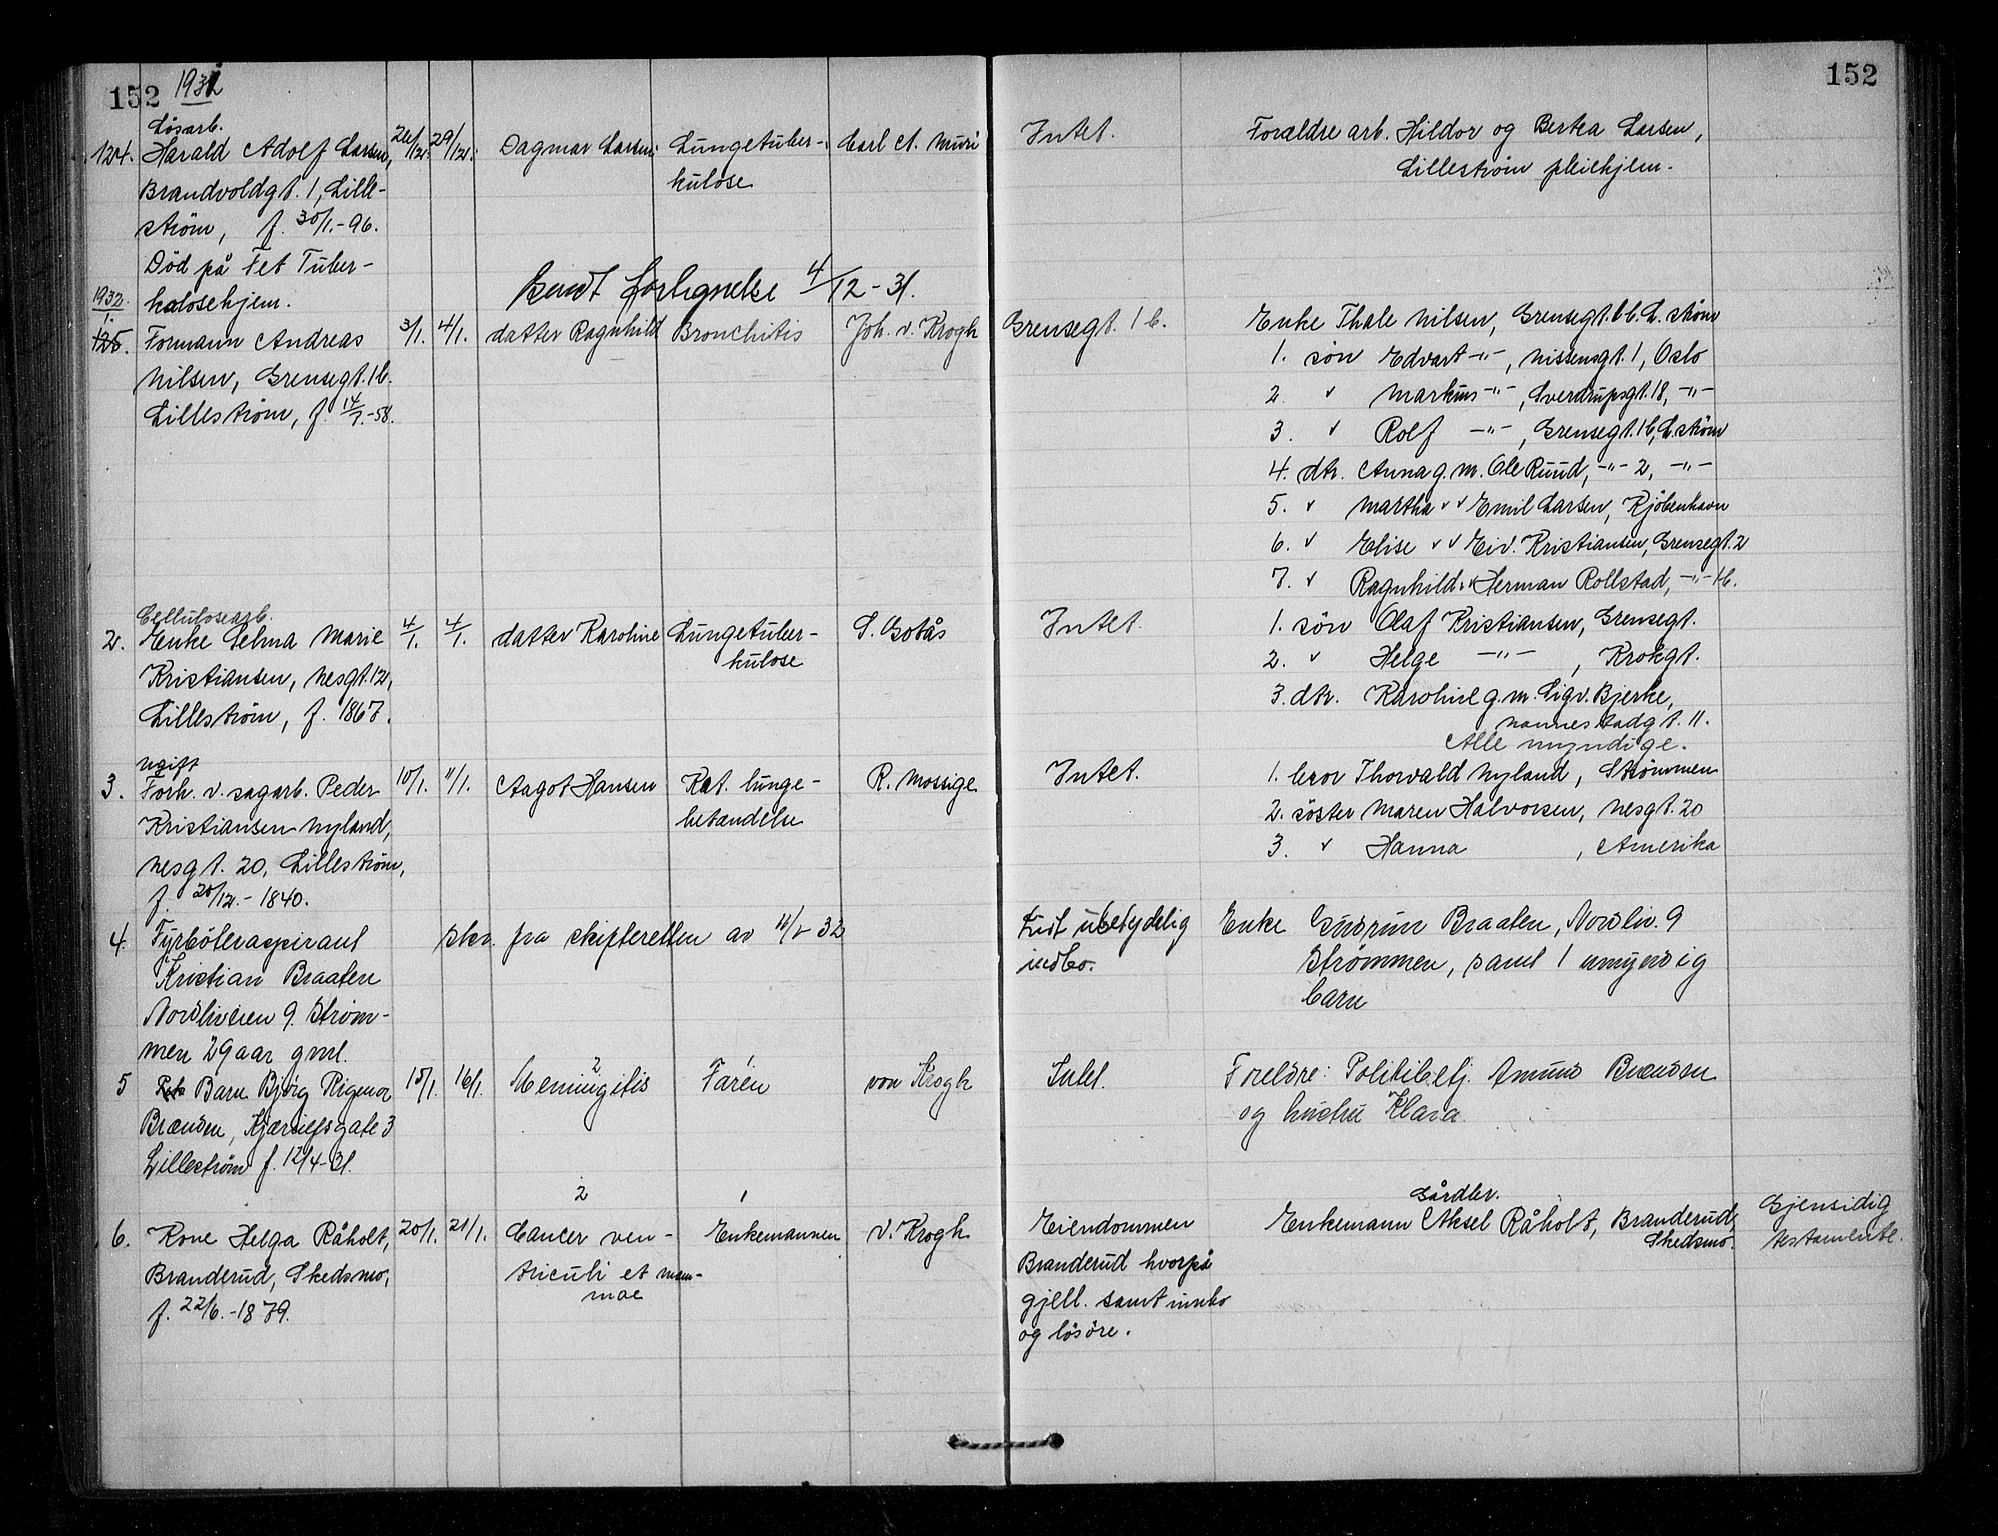 152 1932
152
Løsarb.
124. Harald Adolf Larsen, 24/12. 29/12. Dagmar Larsen Lungetuber- Carl A. Muri Intet. Forældre arb. Hildor og Bertea Larsen,
Brandvoldgt. 1, Lille- kulose Lillestrøm pleiehjem.
strøm, f. 30/1.-96.
Død på Fet Tuber-
kulosehjem. Sendt fortegnelse 4/12-31.
1932
1.
125. Formann Andreas 3/1. 4/1. datter Ragnhild Bronchitis Joh. v. Krogh Grensegt. 1 b. Enke Thale Nilsen, Grensegt. 1 b. L.strøm
Nilsen, Grensegt. 1 b. 1. søn Edvart -"-, Nissensgt. 1, Oslo
Lillestrøm, f. 14/7.-58. 2. " Markus -"-, Sverdrupsgt. 18, -"-
3. " Rolf -"-, Grensegt. 1 b, L.strøm
4. dtr. Anna g. m. Ole Ruud, -"- 2, -"-
5. " Martha " " Emil Larsen, Kjøbenhavn
6. " Elise " " Eiv. Kristiansen, Grensegt. 2
7. " Ragnhild " " Herman Rollstad, -"- 1 b.
Cellulosearb.
2. Enke Selma Marie 4/1. 4/1. datter Karoline Lungetuber- S. Gotås Intet. 1. søn Olaf Kristiansen, Grensegt.
Kristiansen, Nesgt. 12, kulose 2. " Helge -"-, Krokgt.
Lillestrøm, f. 1867. 3. dtr. Karoline g. m. Sigv. Bjerke,
Nannestadgt. 11.
Alle myndige.
Ugift
3. Forh. v. sagarb. Peder 10/1. 11/1. Aagot Hansen Kat. lunge- R. Mossige Intet. 1. bror Thorvald Nyland, Strømmen
Kristiansen Nyland, betændelse 2. søster Maren Halvorsen, Nesgt. 20
Nesgt. 20, Lillestrøm, 3. " Hanna , Amerika
f. 20/12.-1840.
4. Fyrbøteraspirant skr. fra skifteretten av 11/1-32 Lidt ubetydelig Enke Gudrun Braaten, Nordliv. 9
Kristian Braaten indbo. Strømmen, samt 1 umyndig
Nordliveien 9. Strøm- barn
men 29 aar gml.
5 Barn Bjørg Rigmor 15/1. 16/1. Meningitis 2 Faren von Krogh Intet. Foreldre: Politibetj. Amund Brænden
Brænden, Kjærulfsgate 3 og hustru Klara.
Lillestrøm f. 12/4-31.
2 1 Gårdbr.
6. Kone Helga Råholt, 20/1. 21/1. Cancer ven- Enkemannen v. Krogh Eiendommen Enkemann Aksel Råholt, Branderud, Gjensidig
Branderud, Skedsmo, triculi et mam- Branderud hvorpå Skedsmo. testamente.
f. 22/6.-1879. mae gjell. samt innbo
og løsøre.